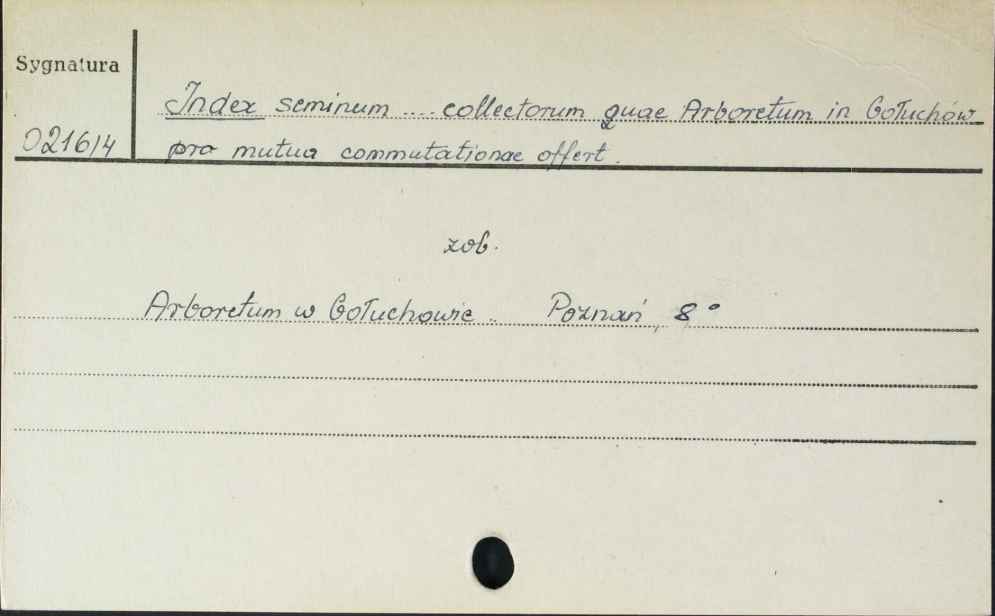 Sygnatura
Index seminum .... collectorum quae Arboretum in Gołuchów
0216/4
pro mutua commutationae offert.
zob.
Arboretum w Gołuchowie. Poznań, 8°